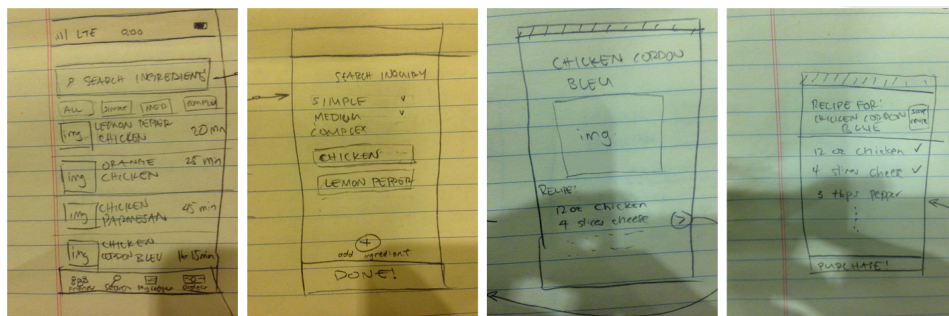 LTE 9:00
SEARCH INGREDIENTS
ALL SIMPLE MED COMPLEX
img LEMON PEPPER CHICKEN 20 min
img ORANGE CHICKEN 25 min
img CHICKEN PARMESAN 45 min
img CHICKEN CORDON BLEU 1hr 15min
SEARCH INQUIRY
SIMPLE
MEDIUM
COMPLEX
CHICKEN
LEMON PEPPER
+
add ingredient
DONE!
CHICKEN CORDON
BLEU
img
RECIPE:
12 oz chicken
4 slices cheese
>
RECIPE FOR:
CHICKEN CORDON
BLEU
12 oz chicken
4 slices cheese
3 tbps pepper
PURCHASE!